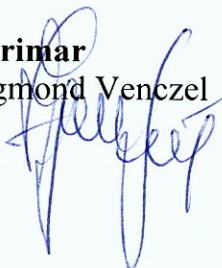 rimar
gmond Venczel